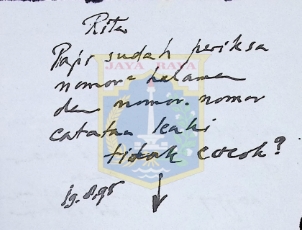 Rita
Papi sudah periksa
nomor² halaman
dan nomor-nomor
catatan kaki
tidak cocok?
19.8.95
JAYA RAYA